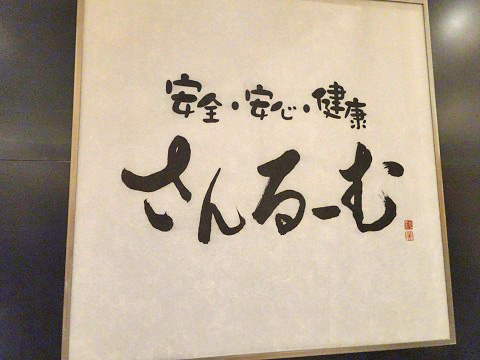 安全・安心・健康
さんるーむ